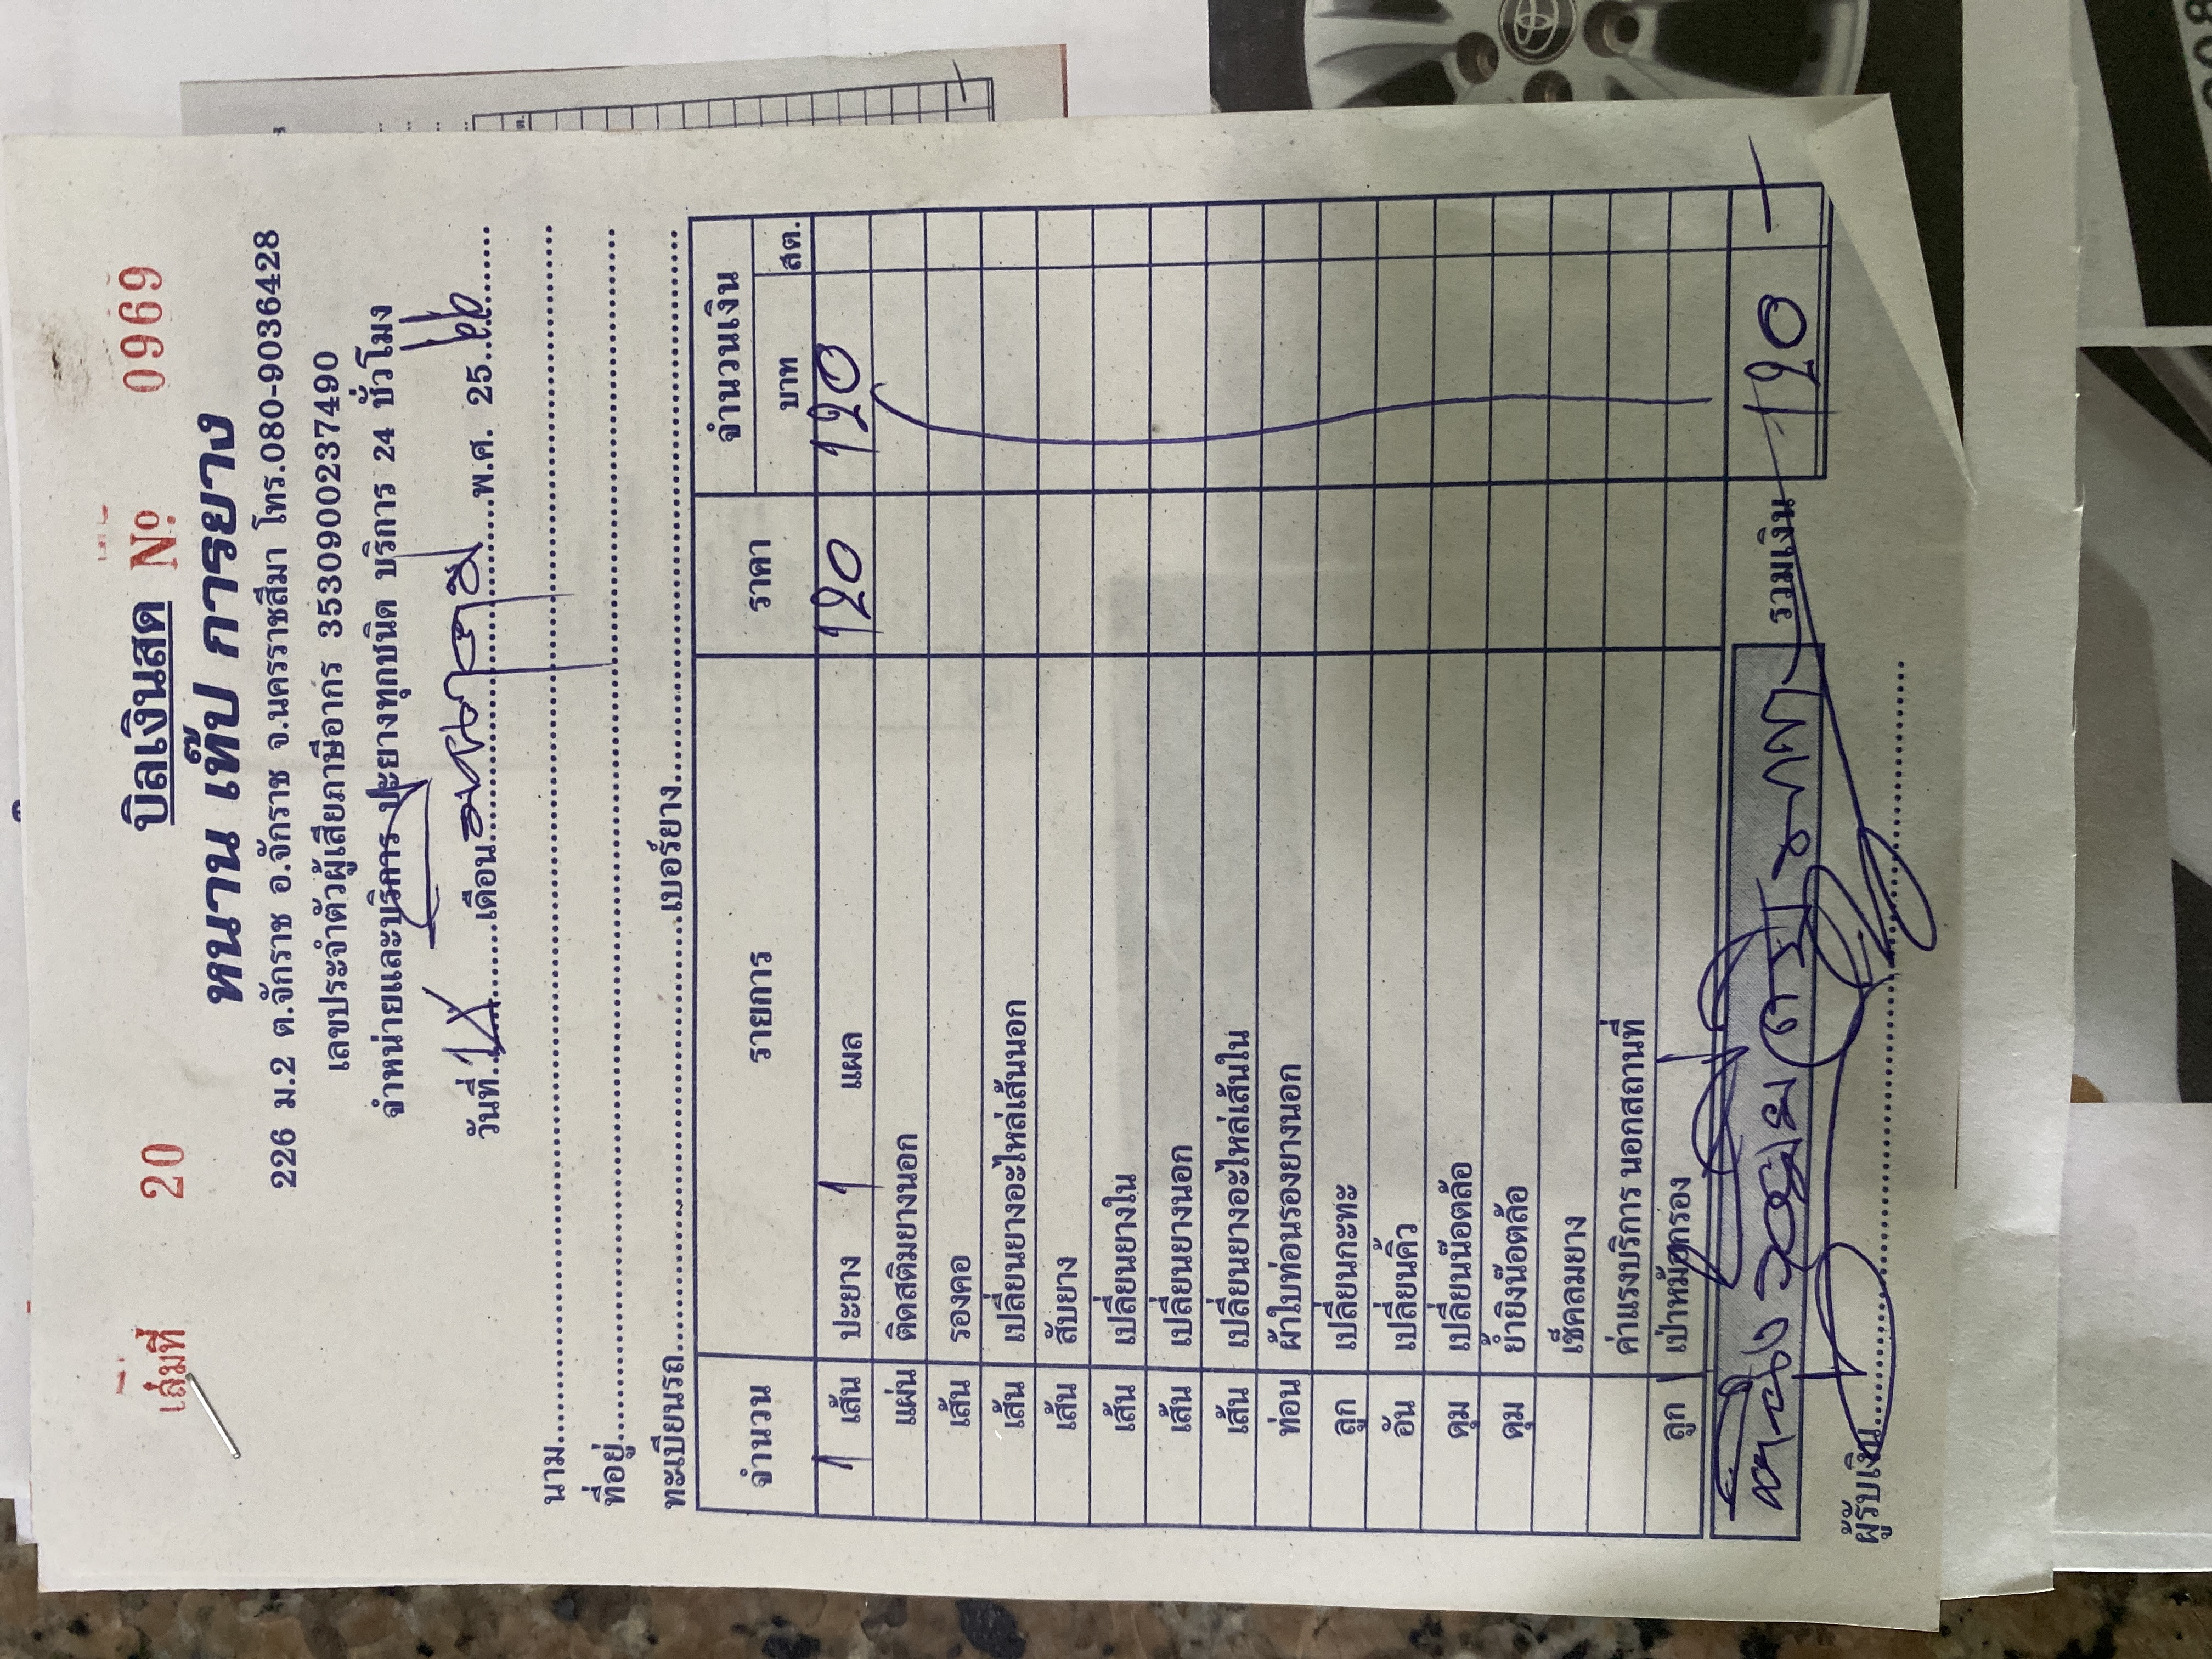 เล่มที่ 20 บิลเงินสด Nº 0969
หนาน เท๊ป การยาง
226 ม.2 ต.จักราช อ.จักราช จ.นครราชสีมา โทร.080-9036428
เลขประจำตัวผู้เสียภาษีอากร 3530900237490
จำหน่ายและบริการ ปะยางทุกชนิด บริการ 24 ชั่วโมง
วันที่ เดือน พ.ศ. 25
นาม
ที่อยู่
ทะเบียนรถ เบอร์ยาง
จำนวน รายการ ราคา จำนวนเงิน
บาท สต.
1 เส้น ปะยาง 1 แผล 120 120
แผ่น ติดสติมยางนอก
เส้น รองคอ
เส้น เปลี่ยนยางอะไหล่เส้นนอก
เส้น สับยาง
เส้น เปลี่ยนยางใน
เส้น เปลี่ยนยางนอก
เส้น เปลี่ยนยางอะไหล่เส้นใน
ท่อน ผ้าใบท่อนรองยางนอก
ลูก เปลี่ยนกะทะ
อัน เปลี่ยนคิว
ดุม เปลี่ยนน๊อตล้อ
ดุม ย้ำยิงน๊อตล้อ
เช็คลมยาง
ค่าแรงบริการ นอกสถานที่
ลูก เป่าหม้อกรอง
รวมเงิน 120 -
ผู้รับเงิน